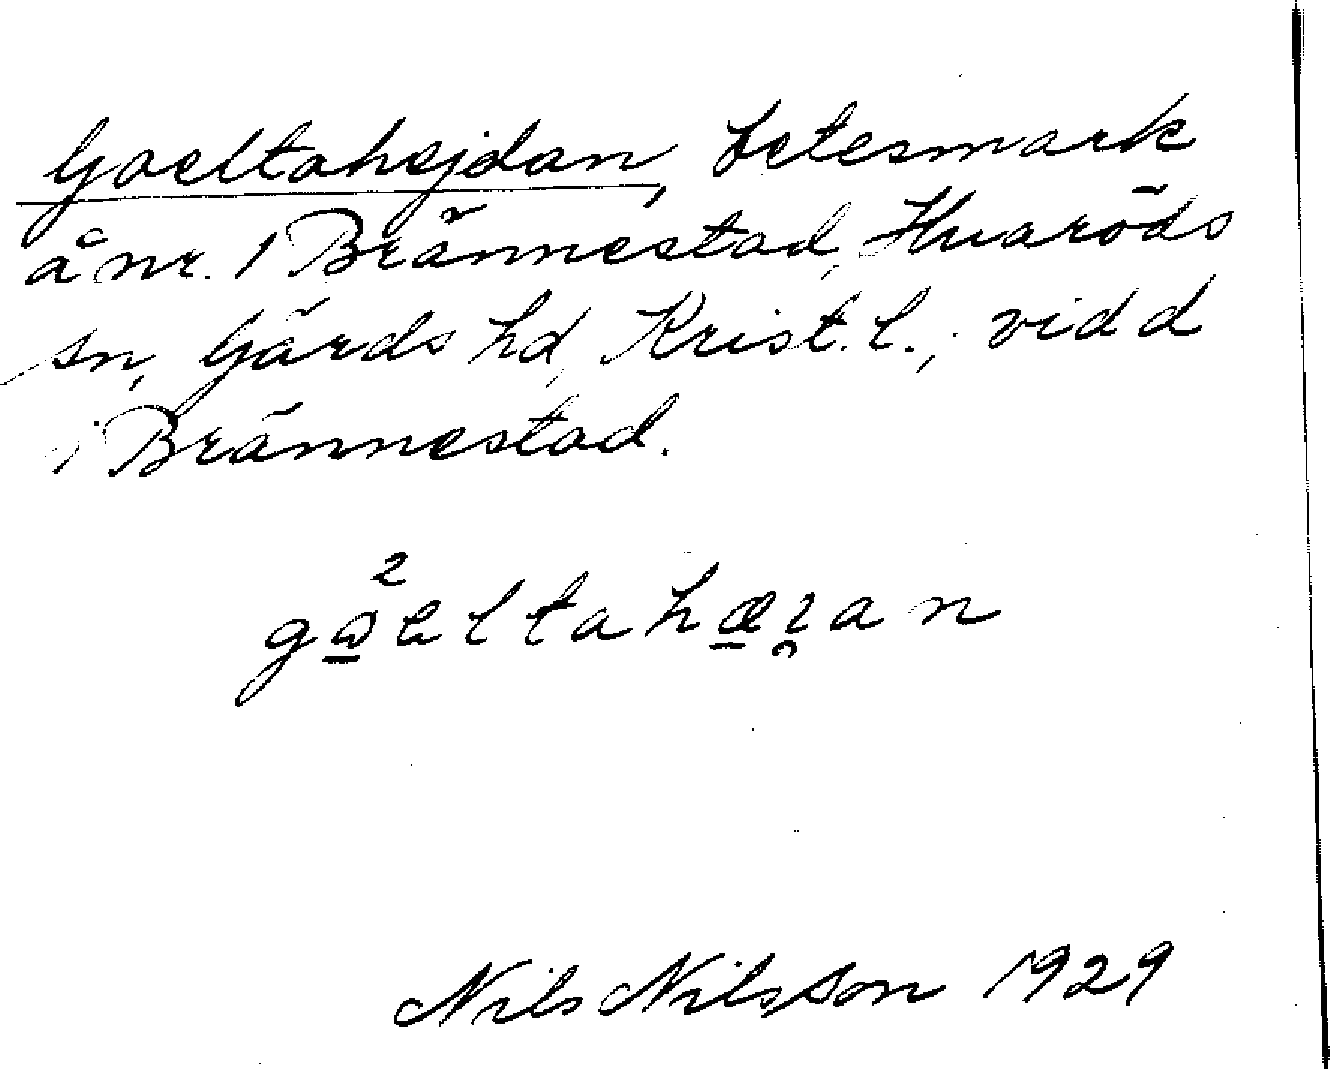 Goeltahejdan, betesmark
å nr. 1 Brännestad, Huaröds
sn, Gärds hd, Krist. l., vidd
i Brännestad.
Nils Nilsson 1929